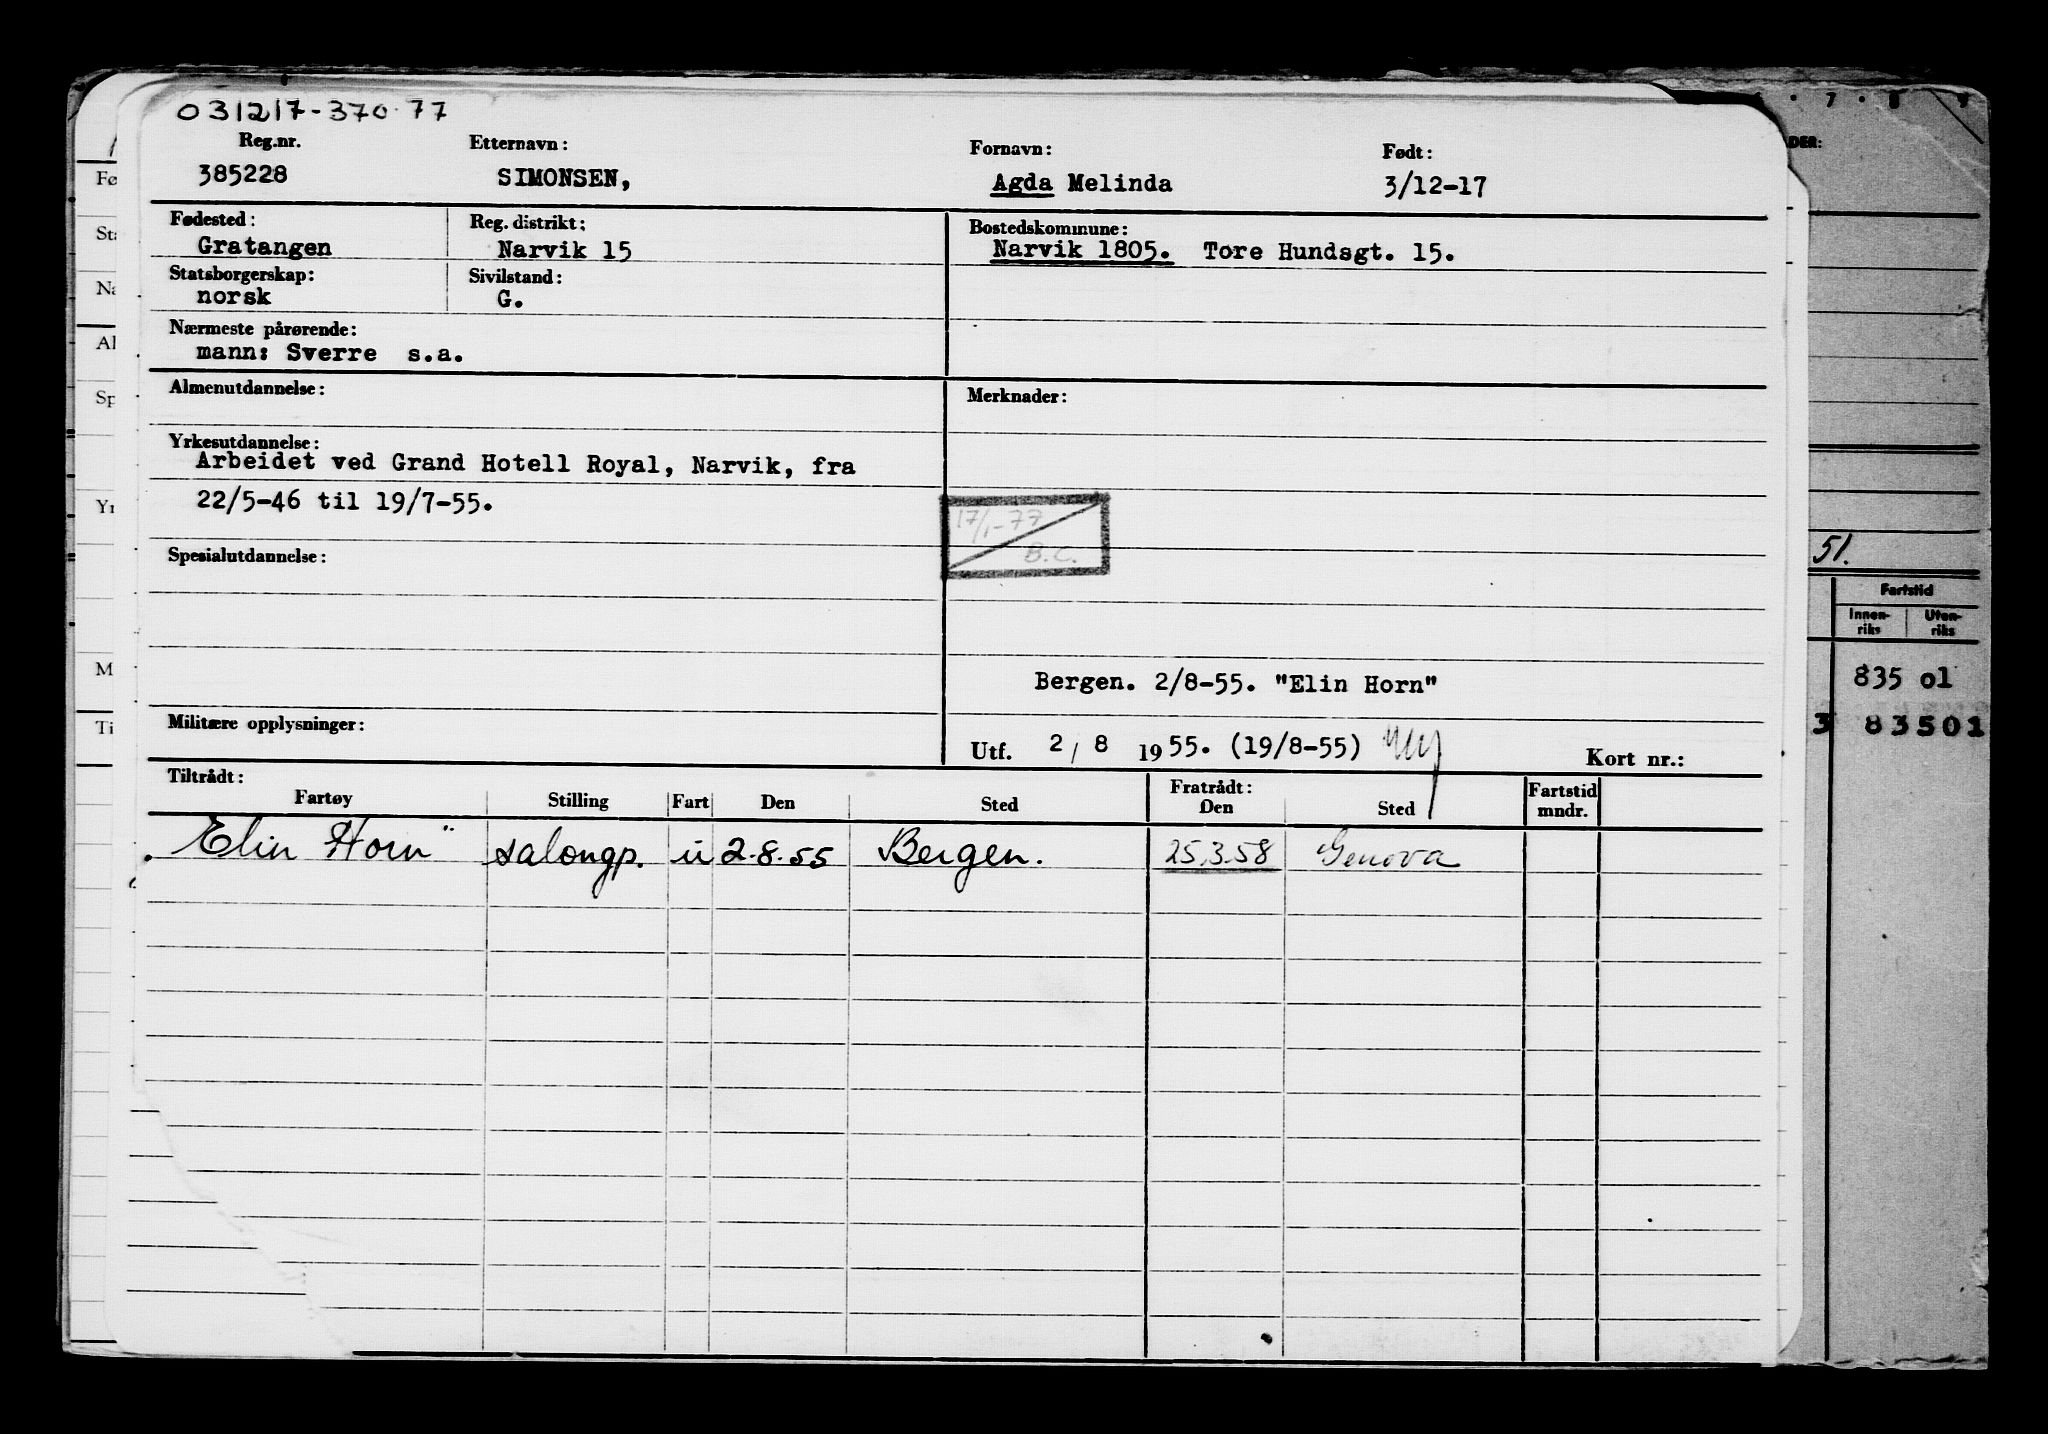 031217-370.77
Reg.nr. Etternavn: Fornavn: Født:
385228 SIMONSEN, Agda Melinda 3/12-17
Fødested: Reg. distrikt: Bostedskommune:
Gratangen Narvik 15 Narvik 1805. Tore Hundsgt. 15.
Statsborgerskap: Sivilstand:
norsk G.
Nærmeste pårørende:
mann: Sverre s.a.
Almenutdannelse: Merknader:
Yrkesutdannelse:
Arbeidet ved Grand Hotell Royal, Narvik, fra
22/5-46 til 19/7-55.
17/1-77
B.C.
Spesialutdannelse:
Bergen. 2/8-55. "Elin Horn"
Militære opplysninger:
Utf. 2/8 1955. (19/8-55) Kort nr.:
Tiltrådt: Fratrådt: Fartstid
Fartøy Stilling Fart Den Sted Den Sted mndr.
Elin Horn" salongp. u 2.8.55 Bergen. 25.3.58 Genova
Fø
Sta
Na
Al
Sp
Yr
M
Ti
7 8 9
DER:
51.
Fartstid
Innen- Uten-
riks riks
835 01
3 83501